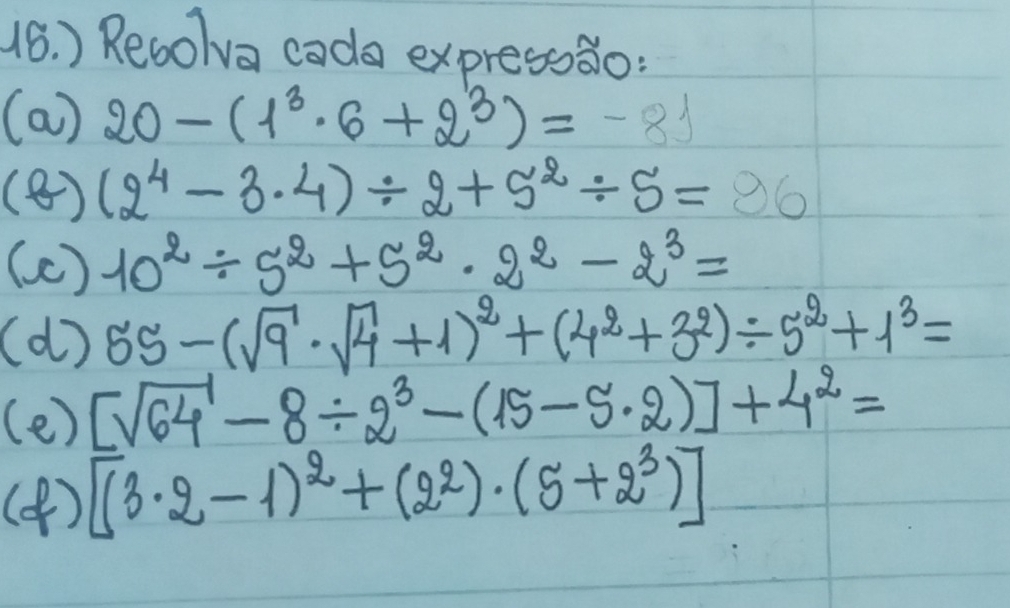 16.) Resolva cada expressão:
(a) 20 - (1³ · 6 + 2³) = -81
(b) (2⁴ - 3 · 4) ÷ 2 + 5² ÷ 5 = 96
(c) 10² ÷ 5² + 5² · 2² - 2³ =
(d) 55 - (√9 · √4 + 1)² + (4² + 3²) ÷ 5² + 1³ =
(e) [√64 - 8 ÷ 2³ - (15 - 5 · 2)] + 4² =
(f) [(3 · 2 - 1)² + (2²) · (5 + 2³)]